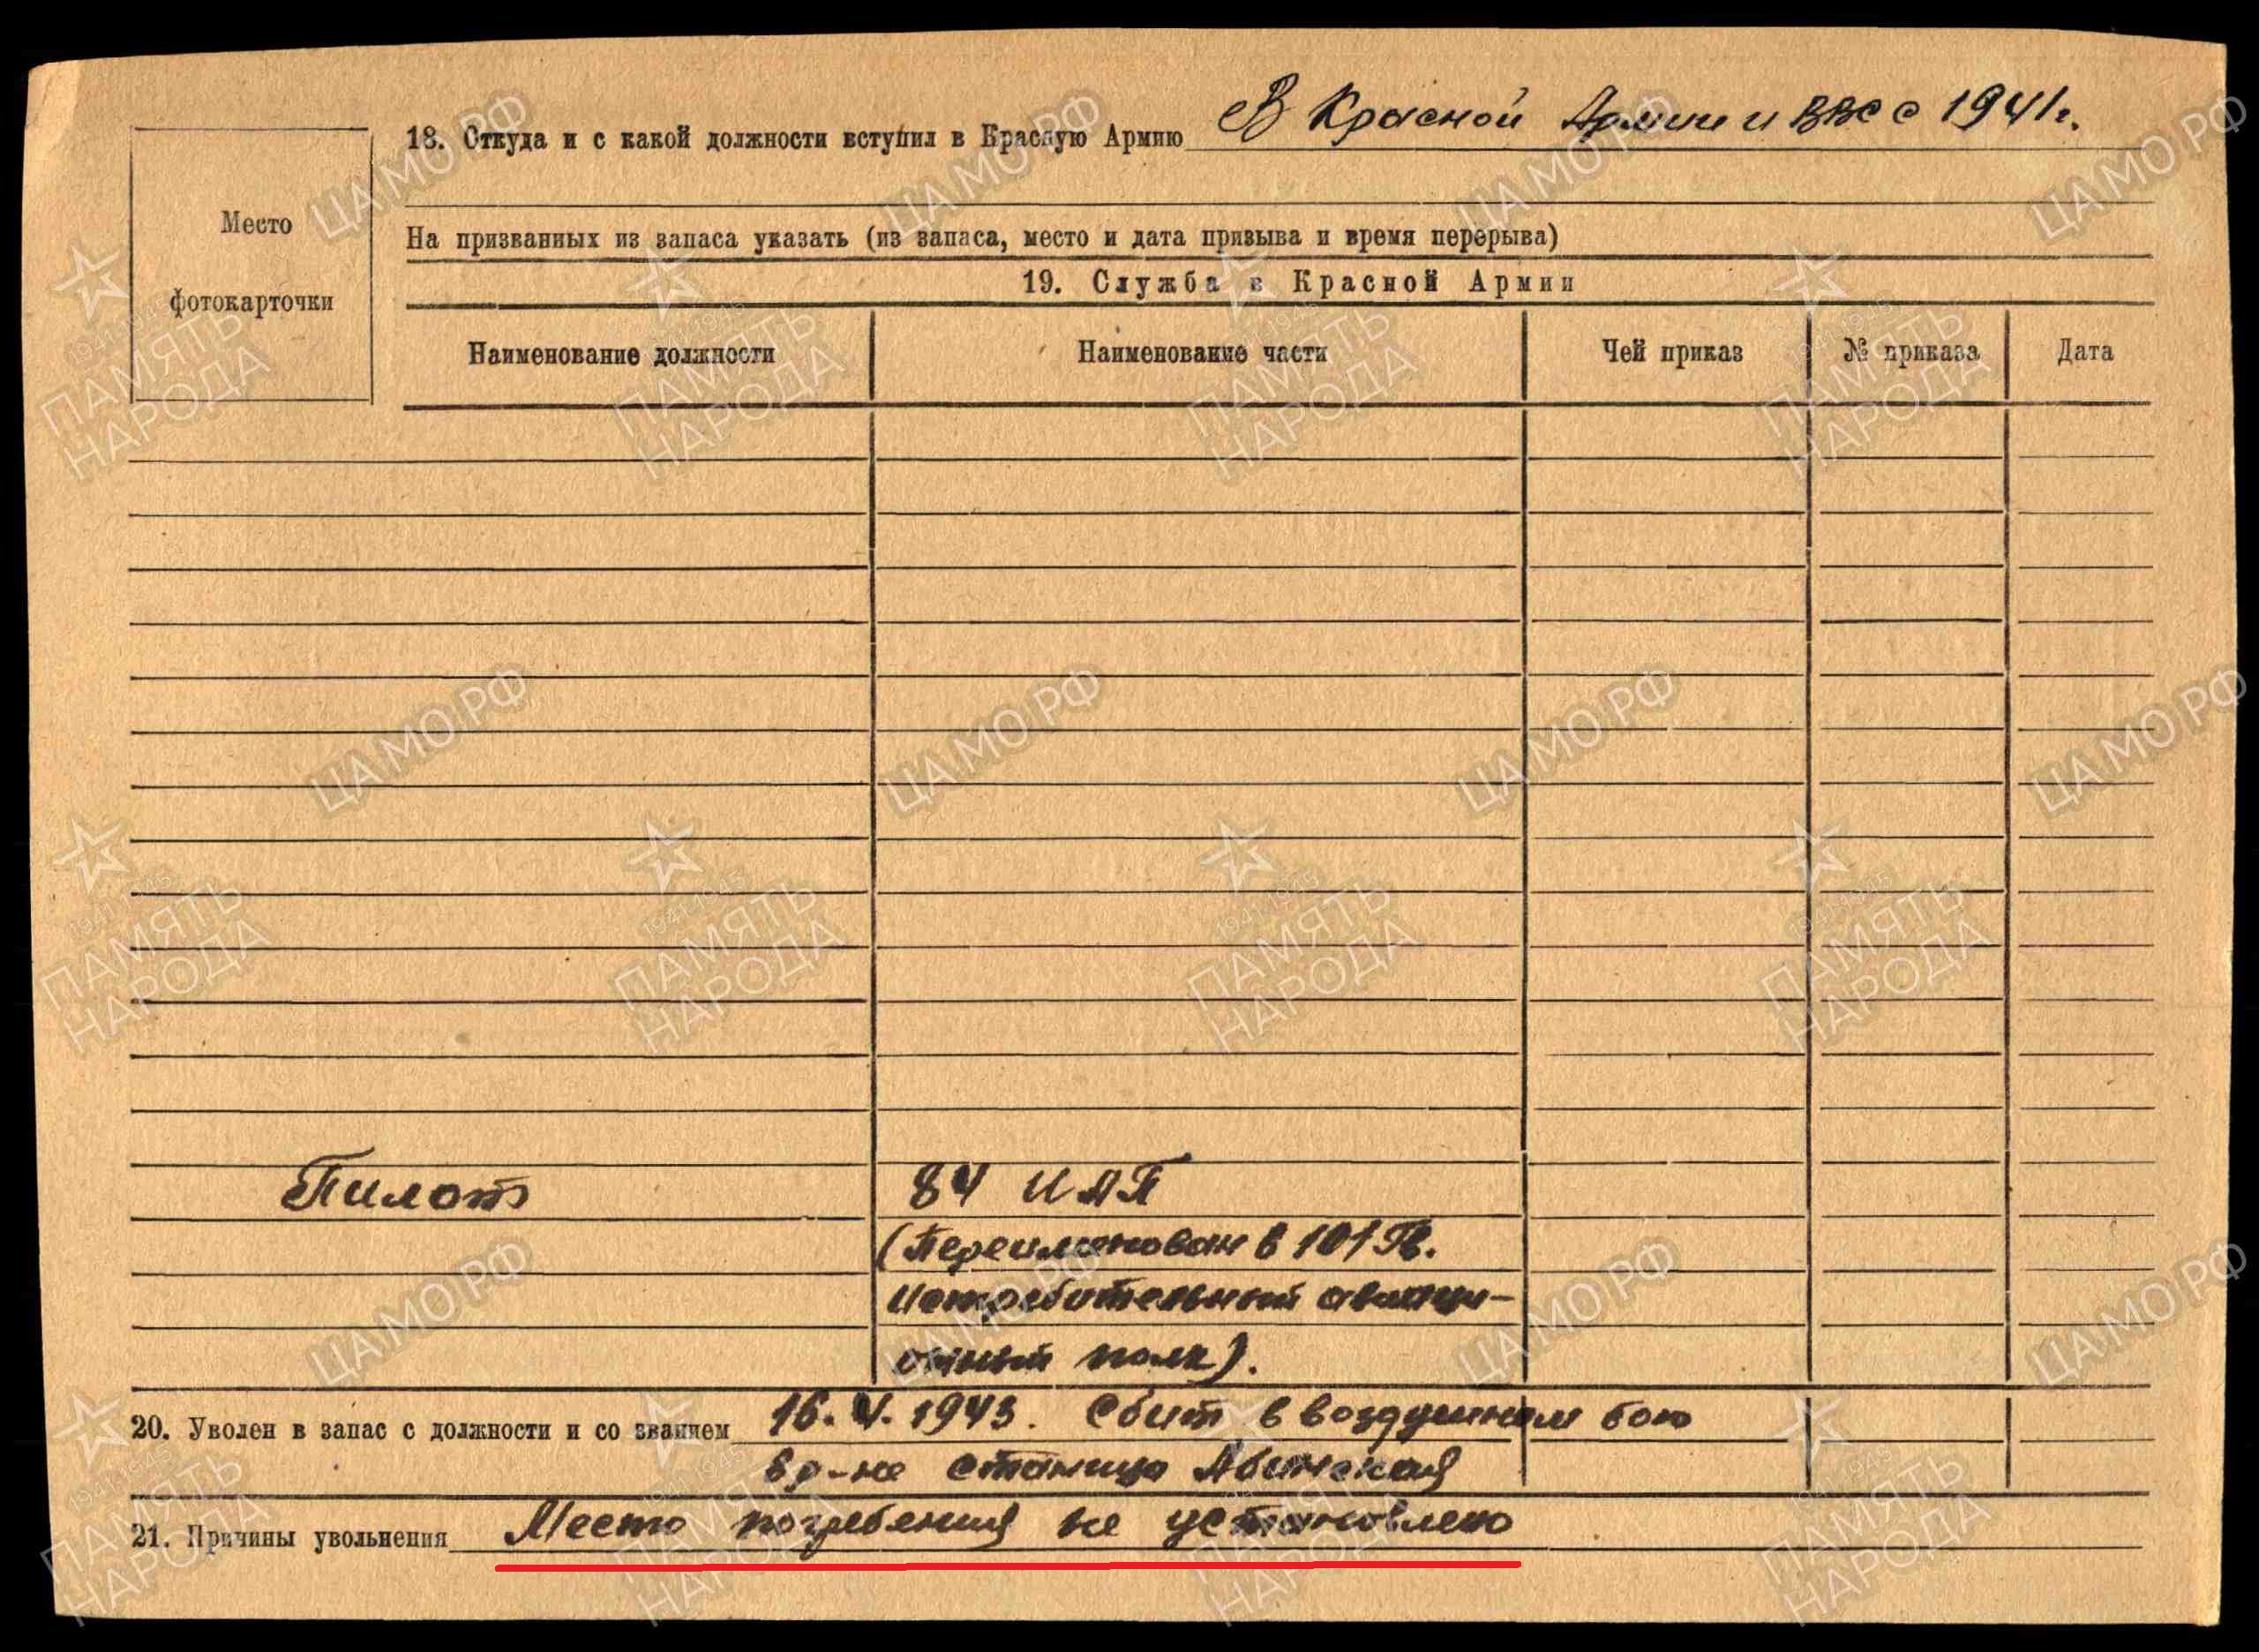 18. Откуда и с какой должности вступил в Красную Армию В Красной Армии и ВВС с 1941г.
Место
фотокарточки
На призванных из запаса указать (из запаса, место и дата призыва и время перерыва)
19. Служба в Красной Армии
Наименование должности Наименование части Чей приказ № приказа Дата
Пилот 84 ИАП
(Переименован в 101 Гв.
Истребительный авиаци-
онный полк).
20. Уволен в запас с должности и со званием 16.V.1943. Сбит в воздушном бою
в р-не станица Абинская
21. Причины увольнения Место погребения не установлено
ЦАМО.РФ
1941-1945
ПАМЯТЬ
НАРОДА